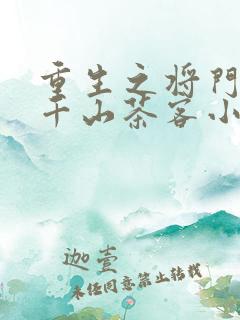 重生之将门
千山茶客小
迦壹
未经同意禁止转载